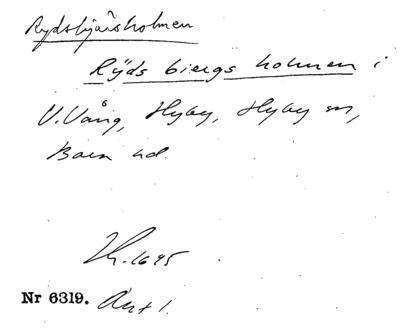 Rydsbjärsholmen
Rÿds biergs holmen i
V. Vång, Hyby, Hyby sn,
Bara hd.
1695
Nr 6319. Ant 1.